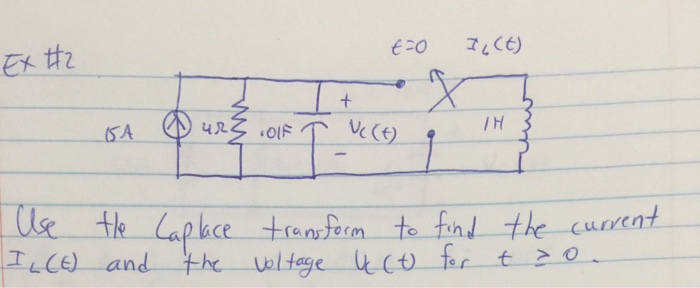 t=0 IL(t)
Ex #2
+
15A 4Ω .01F Vc(t) 1H
-
Use the Laplace transform to find the current
IL(t) and the voltage Vc(t) for t ≥ 0.